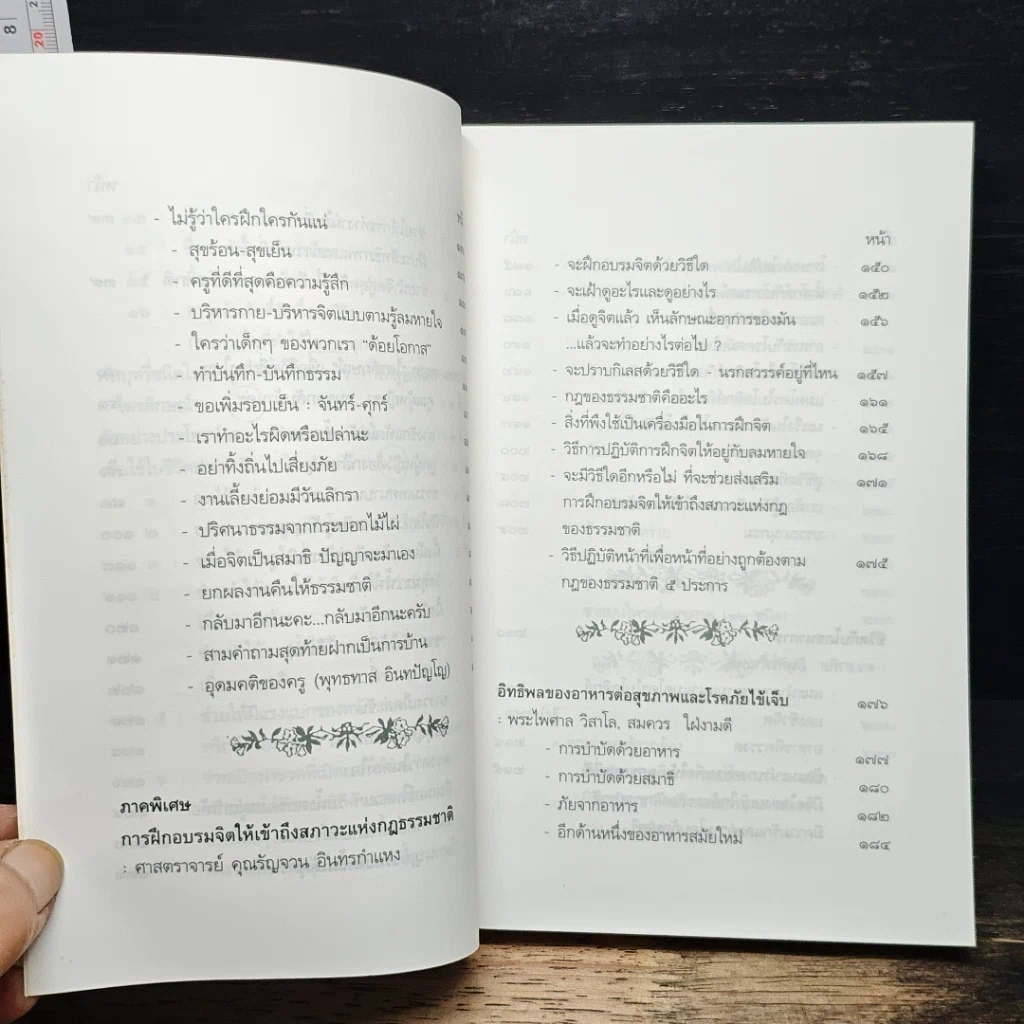 8
20
- ไม่รู้ว่าใครฝึกใครกันแน่
- สุขร้อน-สุขเย็น
- ครูที่ดีที่สุดคือความรู้สึก
- บริหารกาย-บริหารจิตแบบตามรู้ลมหายใจ
- ใครว่าเด็กๆ ของพวกเรา “ด้อยโอกาส”
- ทำบันทึก-บันทึกธรรม
- ขอเพิ่มรอบเย็น : จันทร์-ศุกร์
- เราทำอะไรผิดหรือเปล่านะ
- อย่าทิ้งถิ่นไปเสี่ยงภัย
- งานเลี้ยงย่อมมีวันเลิกรา
- ปริศนาธรรมจากกระบอกไม้ไผ่
- เมื่อจิตเป็นสมาธิ ปัญญาจะมาเอง
- ยกผลงานคืนให้ธรรมชาติ
- กลับมาอีกนะคะ...กลับมาอีกนะครับ
- สามคำถามสุดท้ายฝากเป็นการบ้าน
- อุดมคติของครู (พุทธทาส อินทปัญโญ)
ภาคพิเศษ
การฝึกอบรมจิตให้เข้าถึงสภาวะแห่งกฎธรรมชาติ
: ศาสตราจารย์ คุณรัญจวน อินทรกำแหง
หน้า
- จะฝึกอบรมจิตด้วยวิธีใด ๑๕๐
- จะเฝ้าดูอะไรและดูอย่างไร ๑๕๒
- เมื่อดูจิตแล้ว เห็นลักษณะอาการของมัน ๑๕๖
...แล้วจะทำอย่างไรต่อไป ?
- จะปราบกิเลสด้วยวิธีใด - นรกสวรรค์อยู่ที่ไหน ๑๕๗
- กฎของธรรมชาติคืออะไร ๑๖๑
- สิ่งที่พึงใช้เป็นเครื่องมือในการฝึกจิต ๑๖๕
- วิธีการปฏิบัติการฝึกจิตให้อยู่กับลมหายใจ ๑๖๘
- จะมีวิธีใดอีกหรือไม่ ที่จะช่วยส่งเสริม ๑๗๑
การฝึกอบรมจิตให้เข้าถึงสภาวะแห่งกฎ
ของธรรมชาติ
- วิธีปฏิบัติหน้าที่เพื่อหน้าที่อย่างถูกต้องตาม ๑๗๕
กฎของธรรมชาติ ๕ ประการ
อิทธิพลของอาหารต่อสุขภาพและโรคภัยไข้เจ็บ ๑๗๖
: พระไพศาล วิสาโล, สมควร ใฝ่งามดี
- การบำบัดด้วยอาหาร ๑๗๗
- การบำบัดด้วยสมาธิ ๑๘๐
- ภัยจากอาหาร ๑๘๒
- อีกด้านหนึ่งของอาหารสมัยใหม่ ๑๘๔